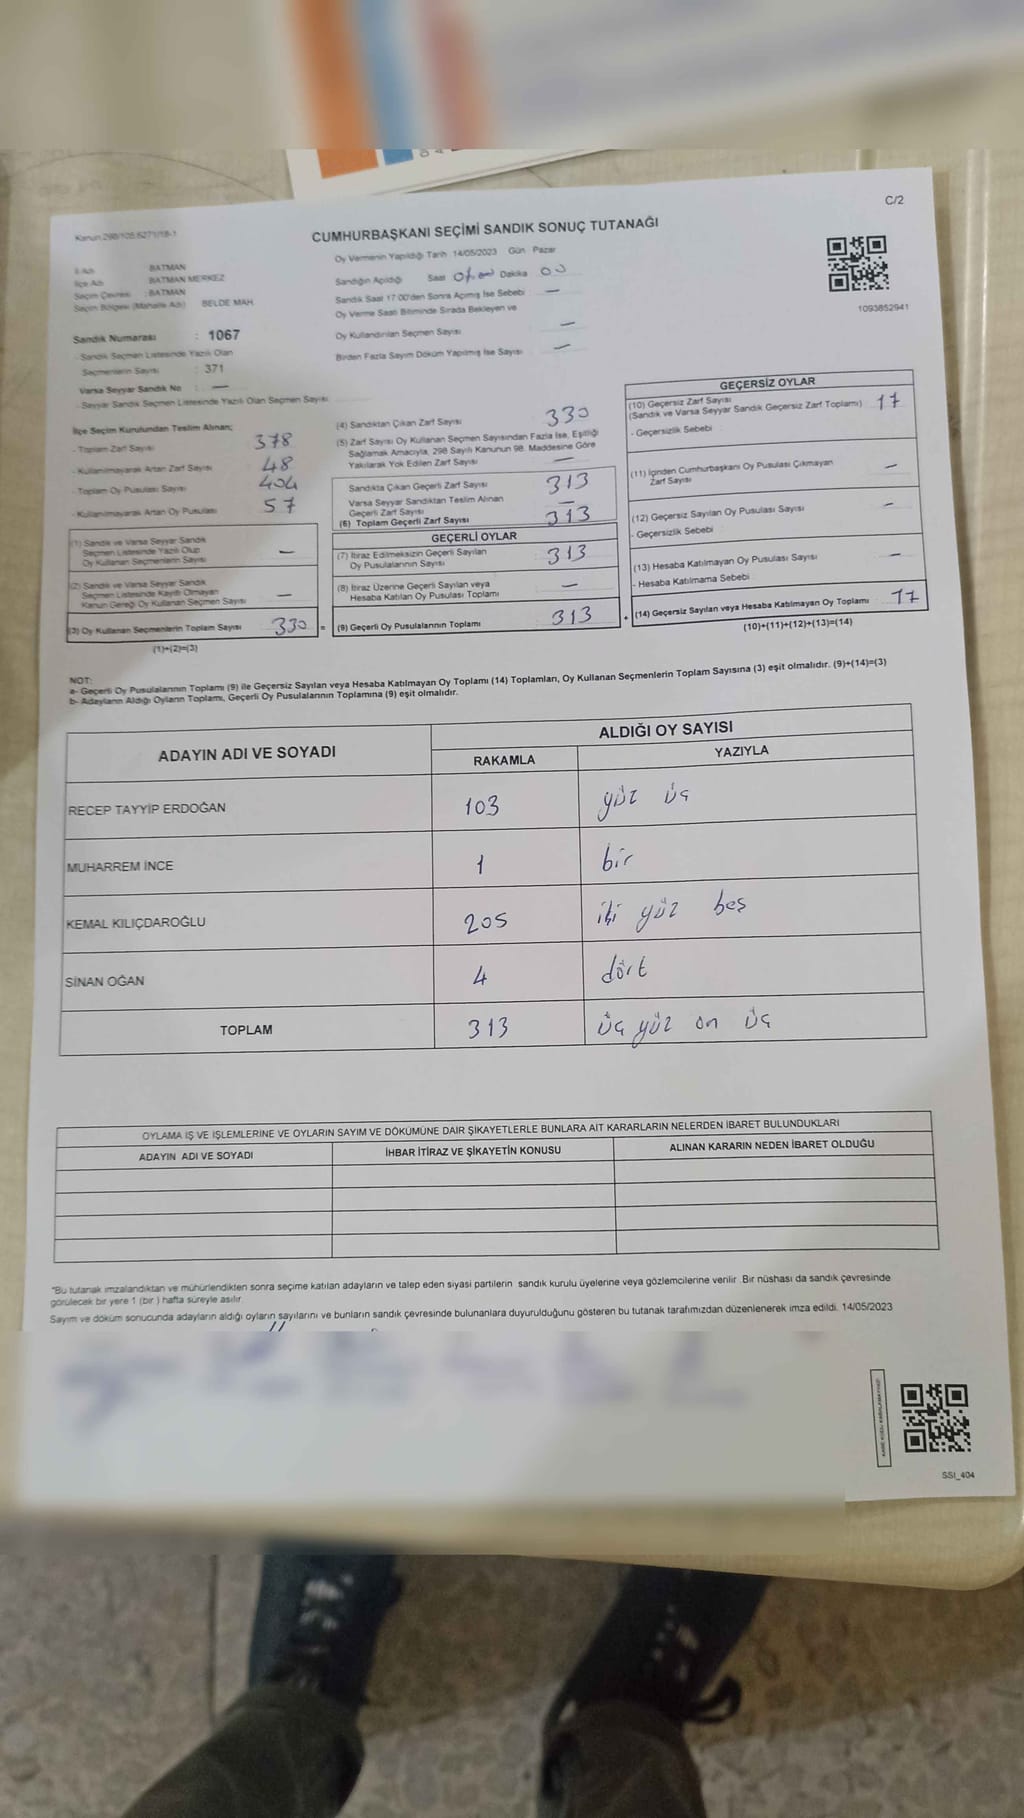 C/2
Kanun 298/105 6271/18-1
CUMHURBAŞKANI SEÇİMİ SANDIK SONUÇ TUTANAĞI
1093852941
İli Adı BATMAN
İlçe Adı BATMAN MERKEZ
Seçim Çevresi : BATMAN
Seçim Bölgesi (Mahalle Adı) BELDE MAH.
Sandık Numarası : 1067
- Sandık Seçmen Listesinde Yazılı Olan
Seçmenlerin Sayısı : 371
Varsa Seyyar Sandık No : —
- Seyyar Sandık Seçmen Listesinde Yazılı Olan Seçmen Sayısı
Oy Vermenin Yapıldığı Tarih 14/05/2023 Gün Pazar
Sandığın Açıldığı Saat Dakika 00
Sandık Saat 17:00'den Sonra Açılmış İse Sebebi —
Oy Verme Saati Bitiminde Sırada Bekleyen ve
Oy Kullandırılan Seçmen Sayısı —
Birden Fazla Sayım Döküm Yapılmış İse Sayısı —
İlçe Seçim Kurulundan Teslim Alınan;
- Toplam Zarf Sayısı 378
- Kullanılmayarak Artan Zarf Sayısı 48
- Toplam Oy Pusulası Sayısı 404
- Kullanılmayarak Artan Oy Pusulası 57
(1) Sandık ve Varsa Seyyar Sandık
Seçmen Listesinde Yazılı Olup
Oy Kullanan Seçmenlerin Sayısı —
(2) Sandık ve Varsa Seyyar Sandık
Seçmen Listesinde Kayıtlı Olmayan
Kanun Gereği Oy Kullanan Seçmen Sayısı —
(3) Oy Kullanan Seçmenlerin Toplam Sayısı 330 =
(1)+(2)=(3)
(4) Sandıktan Çıkan Zarf Sayısı 330
(5) Zarf Sayısı Oy Kullanan Seçmen Sayısından Fazla İse, Eşitliği
Sağlamak Amacıyla, 298 Sayılı Kanunun 98. Maddesine Göre
Yakılarak Yok Edilen Zarf Sayısı —
Sandıkta Çıkan Geçerli Zarf Sayısı 313
Varsa Seyyar Sandıktan Teslim Alınan
Geçerli Zarf Sayısı —
(6) Toplam Geçerli Zarf Sayısı 313
GEÇERLİ OYLAR
(7) İtiraz Edilmeksizin Geçerli Sayılan
Oy Pusulalarının Sayısı 313
(8) İtiraz Üzerine Geçerli Sayılan veya
Hesaba Katılan Oy Pusulası Toplamı —
(9) Geçerli Oy Pusulalarının Toplamı 313 +
GEÇERSİZ OYLAR
(10) Geçersiz Zarf Sayısı
(Sandık ve Varsa Seyyar Sandık Geçersiz Zarf Toplamı) 17
- Geçersizlik Sebebi
(11) İçinden Cumhurbaşkanı Oy Pusulası Çıkmayan
Zarf Sayısı —
(12) Geçersiz Sayılan Oy Pusulası Sayısı —
- Geçersizlik Sebebi
(13) Hesaba Katılmayan Oy Pusulası Sayısı —
- Hesaba Katılmama Sebebi
(14) Geçersiz Sayılan veya Hesaba Katılmayan Oy Toplamı 17
(10)+(11)+(12)+(13)=(14)
NOT:
a- Geçerli Oy Pusulalarının Toplamı (9) ile Geçersiz Sayılan veya Hesaba Katılmayan Oy Toplamı (14) Toplamları, Oy Kullanan Seçmenlerin Toplam Sayısına (3) eşit olmalıdır. (9)+(14)=(3)
b- Adayların Aldığı Oyların Toplamı, Geçerli Oy Pusulalarının Toplamına (9) eşit olmalıdır.
ADAYIN ADI VE SOYADI
ALDIĞI OY SAYISI
RAKAMLA YAZIYLA
RECEP TAYYİP ERDOĞAN 103 yüz üç
MUHARREM İNCE 1 bir
KEMAL KILIÇDAROĞLU 205 iki yüz beş
SİNAN OĞAN 4 dört
TOPLAM 313 üç yüz on üç
OYLAMA İŞ VE İŞLEMLERİNE VE OYLARIN SAYIM VE DÖKÜMÜNE DAİR ŞİKAYETLERLE BUNLARA AİT KARARLARIN NELERDEN İBARET BULUNDUKLARI
ADAYIN ADI VE SOYADI İHBAR İTİRAZ VE ŞİKAYETİN KONUSU ALINAN KARARIN NEDEN İBARET OLDUĞU
"Bu tutanak imzalandıktan ve mühürlendikten sonra seçime katılan adayların ve talep eden siyasi partilerin sandık kurulu üyelerine veya gözlemcilerine verilir. Bir nüshası da sandık çevresinde
görülecek bir yere 1 (bir ) hafta süreyle asılır.
Sayım ve döküm sonucunda adayların aldığı oyların sayılarını ve bunların sandık çevresinde bulunanlara duyurulduğunu gösteren bu tutanak tarafımızdan düzenlenerek imza edildi. 14/05/2023
SSI_404